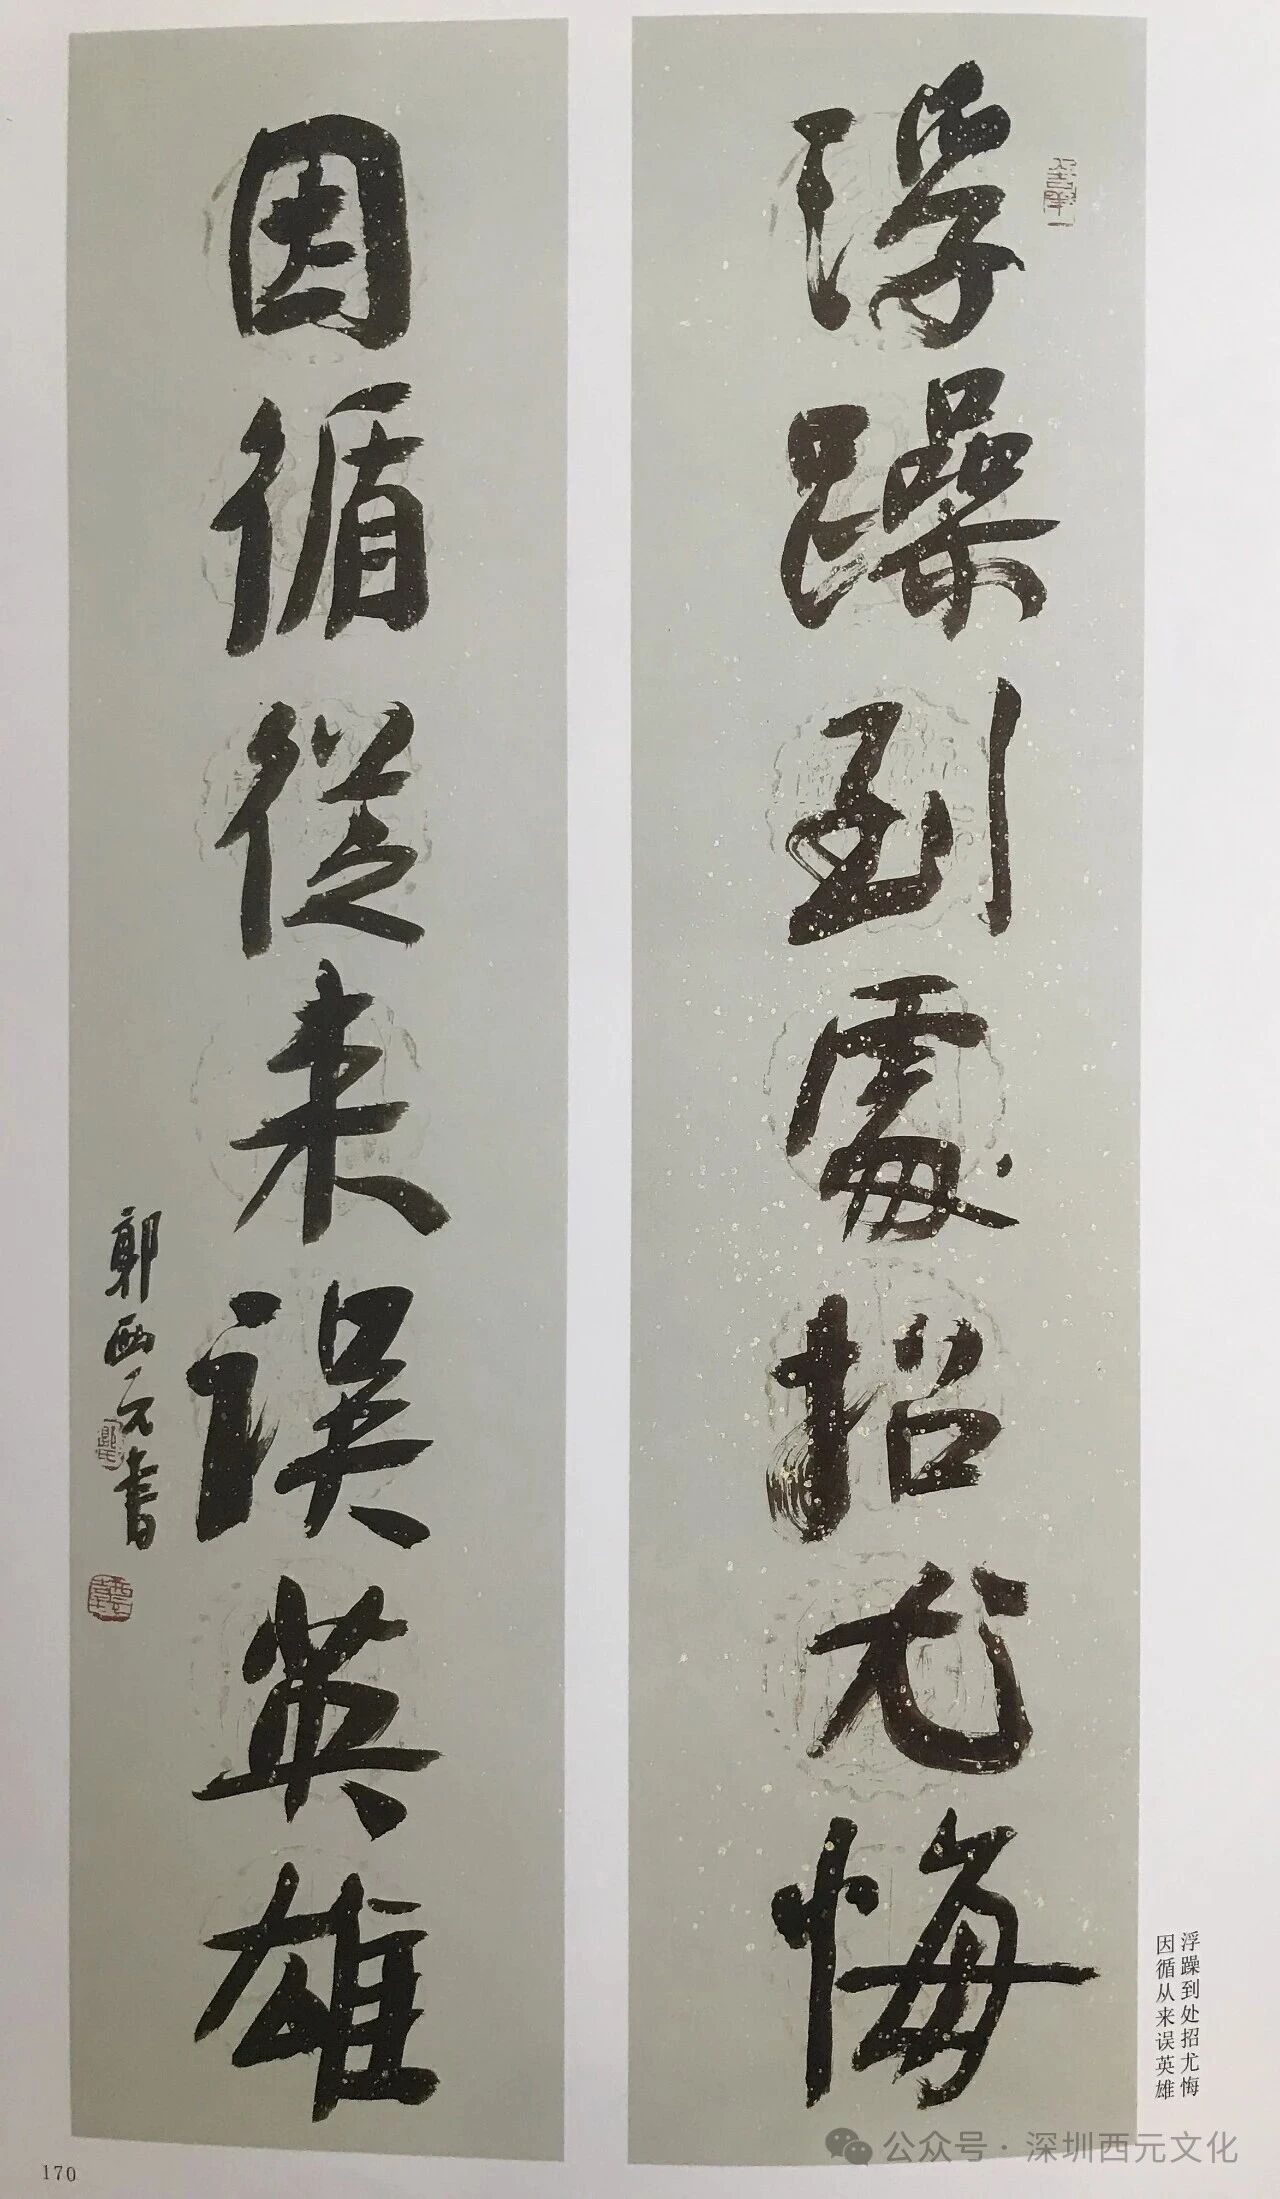 浮躁到處招尤悔
因循從来误英雄
郭西元書
浮躁到处招尤悔
因循从来误英雄
170
公众号·深圳西元文化